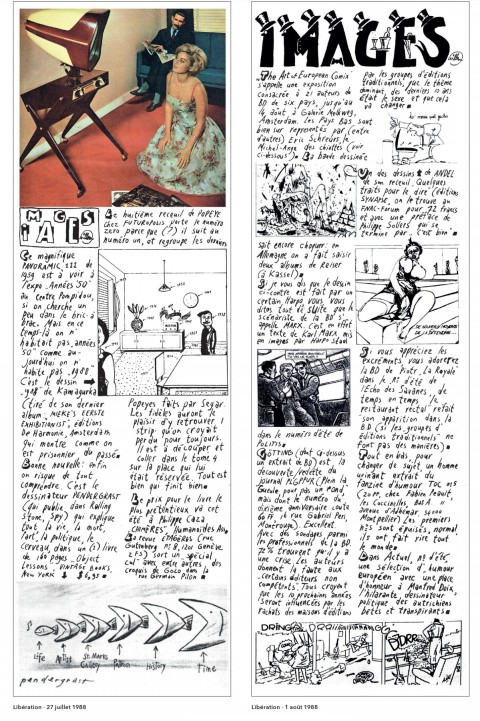 IMAGES
Le huitième recueil de POPEYE
chez FUTUROPOLIS porte le numéro
zéro parce que (?) il suit au
numéro un, et regroupe les derniers
Ce magnifique
PANORAMIC 111 de
1959 est à voir à
l'expo "Années 50"
au centre Pompidou,
si on cherche un
peu dans le bric-à
brac. Mais en ce
temps-là on n'
habitait pas "années
50" comme au-
jourd'hui on n'
habite pas "1988".
C'est le dessin
"1988" de Kamagurka
(tiré de son dernier
album, "MIEKE'S EERSTE
EXHIBITIONIST", éditions
De Harmonie, Amsterdam
qui montre comme on
est prisonnier du passé
Bonne nouvelle: enfin
on risque de tout
comprendre. C'est le
dessinateur PENDERGRAST
(qui publie dans Rolling
Stone, Spy) qui explique
tout (la vie, la mort,
l'art, la politique, le
cerveau, dans un (1) livre
de 180 pages (Object
Lessons, VINTAGE BOOKS,
NEW YORK $ 6,95)
Popeyes faits par Segar.
Les fidèles auront le
plaisir d'y retrouver 1
strip qu'on croyait
perdu pour toujours.
Il est à découper et
coller dans le tome 4
sur la place qui lui
était réservée. Tout est
bien qui finit bien
Le prix pour le livre le
plus prétentieux va cet
été à Philippe Caza
(CHIMÈRES, Humanoïdes Ass)
La revue EDMOERAS (rue
Gutenberg № 8, 1201 Genève
sort un spécial
cul avec entre autres, des
croquis de Goco dans la
rue Germain Pilon
Life
Artist
St. Marks
Gallery
Patron
History
Time
pendergrast
Libération - 27 juillet 1988
IMAGES
"The Art of European Comix"
s'appelle une exposition
consacrée à 21 auteurs de
BD de six pays, jusqu'au
14 août à Galerie Melkweg,
Amsterdam. Les Pays Bas sont
bien sur représentés par (entre
d'autres) Eric Schreurs, le
Michel-Ange des chiottes (voir
ci-dessous). La bande dessinée
par les groupes d'éditions
traditionnels, que le thème
dominant, des derniers 10 ans
était le sexe et que cela
va changer
Un des dessins de ANDEL
de son recueil "Quelques
traits pour le dire" (éditions
SYNAPSE, on le trouve au
FNAC-Forum pour 72 francs
et avec une préface de
Philippe Sollers qui se
termine par "C'est bien".
sait encore choquer: en
Allemagne on a fait saisir
deux albums de Reiser
(à Kassel)
Si je vous dis que le dessin
ci-contre est fait par un
certain Harpo, vous vous
dites tout de suite que le
scénariste de la BD s'
appelle MARX. C'est en effet
un texte de Karl Marx mis
en images par Harpo
dans le numéro d'été de
POLITIS
GÖTTING (dont ci-dessus
un extrait de BD) est la
découverte/vedette du
journal PLGPPUR (Plein la
Gueule pour pas un Rond,
mais dont le numéro du
dixième anniversaire coûte
60 Ff, 18 rue Gabriel Péri,
Montrouge). Excellent
Avec des sondages parmi
les professionnels de la BD
72 % trouvent qu'il y a
une crise. Les auteurs
donnent la faute aux
certains éditeurs non
compétents. Tous croyent
que les 10 prochains années
seront influencées par les
achats des maisons d'éditions
Si vous appréciez les
excréments, vous adorerez
la BD de Piotr, "La Royale"
dans le № d'été de
l'Écho des Savanes, de
temps en temps le
restaurant rectal refait
son apparition dans la
BD (si les groupes d'
éditions traditionnels ne
font pas des manières)
Tout en bas, pour
changer de sujet, un homme
urinant extrait du
fanzine d'humour TOC №5
les Coccinelles, Bât. A
avenue d'Albémar 34000
Montpellier) Les premiers
№s sont épuisés, normal
ils ont fait rire tout
le monde
Dans Actuel, № d'été,
une sélection d'humour
européen avec une place
d'honneur à Manfred Deix,
l'hilarante, dessinateur
politique des autrichiens
bêtes et transpirants
DRING
Libération - 1 août 1988